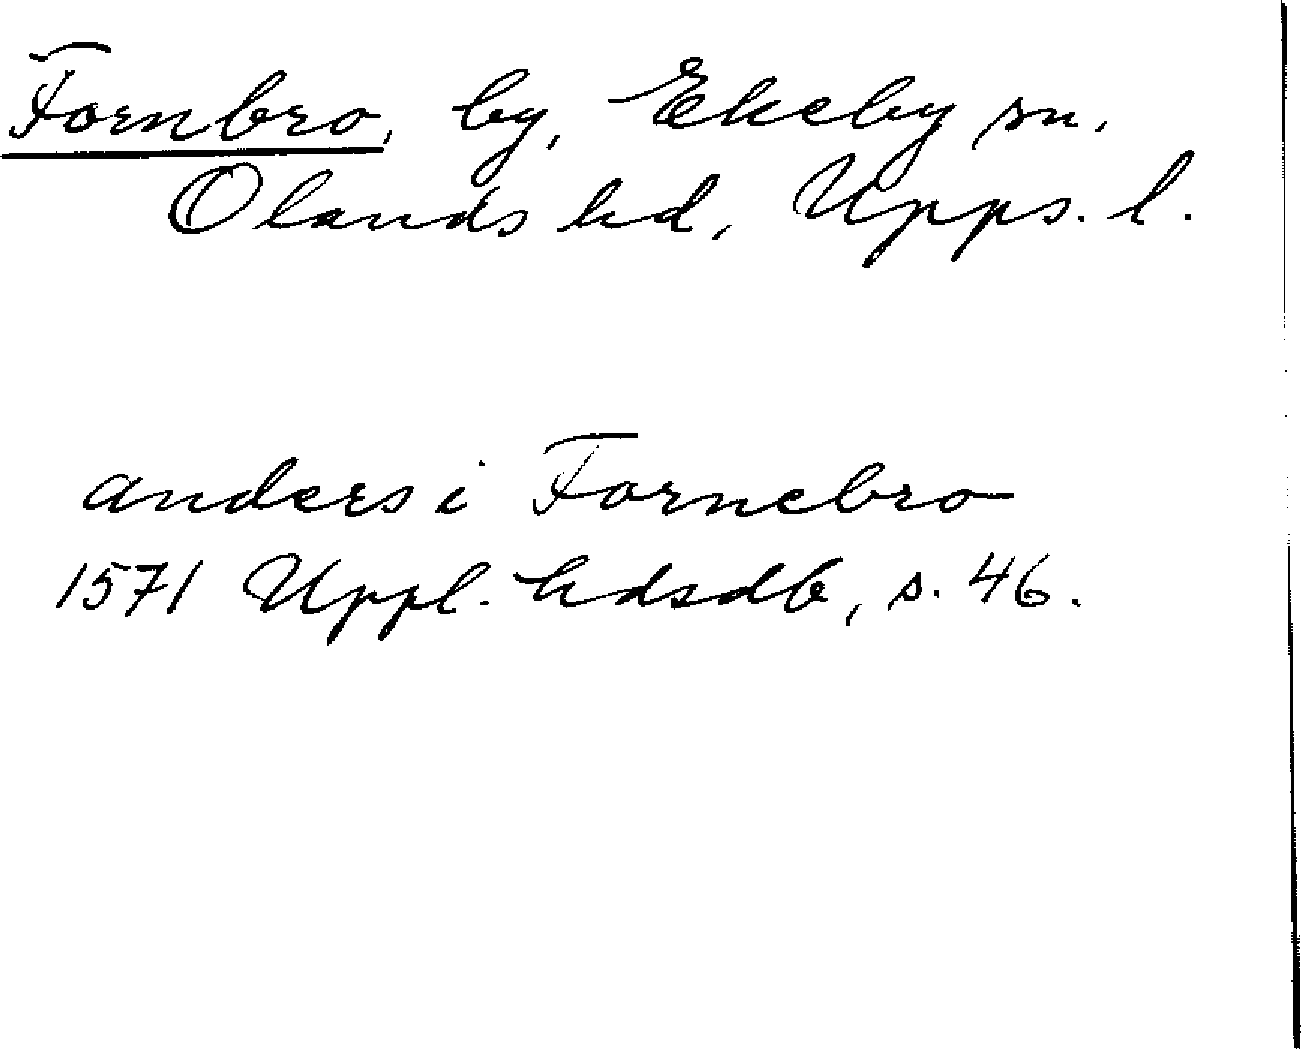 Fornbro, by, Ekeby sn.
Olands hd, Upps. l.
anders i Fornebro
1571 Uppl. hdsdb, s. 46.